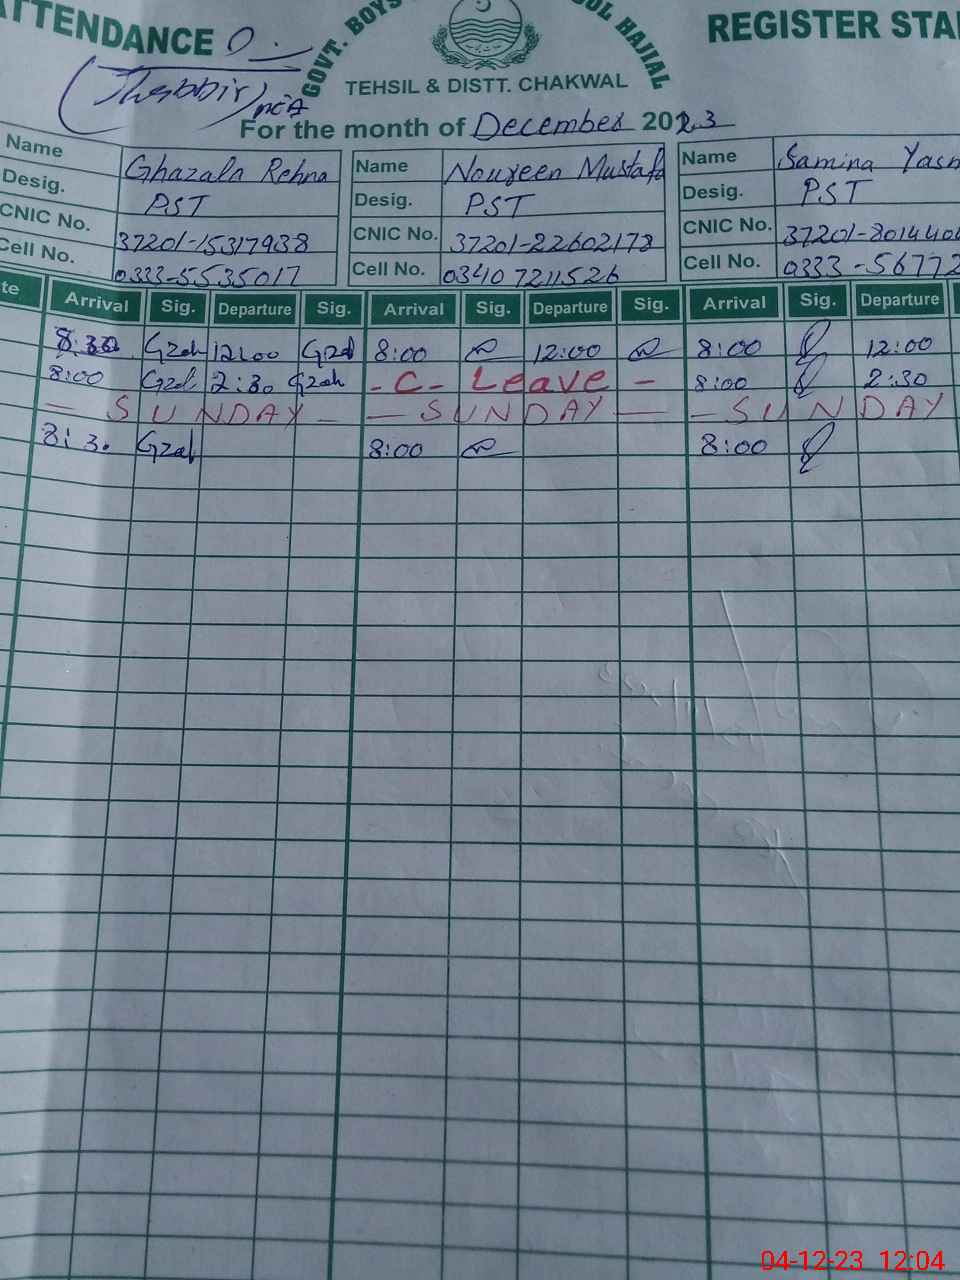 ATTENDANCE
GOVT. BOYS
OOL HAJIAL
REGISTER STA
TEHSIL & DISTT. CHAKWAL
(Shabbir) MEA
For the month of December 2023
Name Ghazala Rehna Name Noureen Mustafa Name Samina Yasm
Desig. PST Desig. PST Desig. PST
CNIC No. 37201-15317938 CNIC No. 37201-22602178 CNIC No. 37201-801440
Cell No. 0333-5535017 Cell No. 03407211526 Cell No. 0333-56772
te Arrival Sig. Departure Sig. Arrival Sig. Departure Sig. Arrival Sig. Departure
8:30 Gzal 12:00 Gzal 8:00 12:00 8:00 12:00
8:00 Gzal 2:30 Gzal - C - Leave - 8:00 2:30
- SUNDAY - - SUNDAY - - SUNDAY
8:30 Gzal 8:00 8:00
04-12-23 12:04